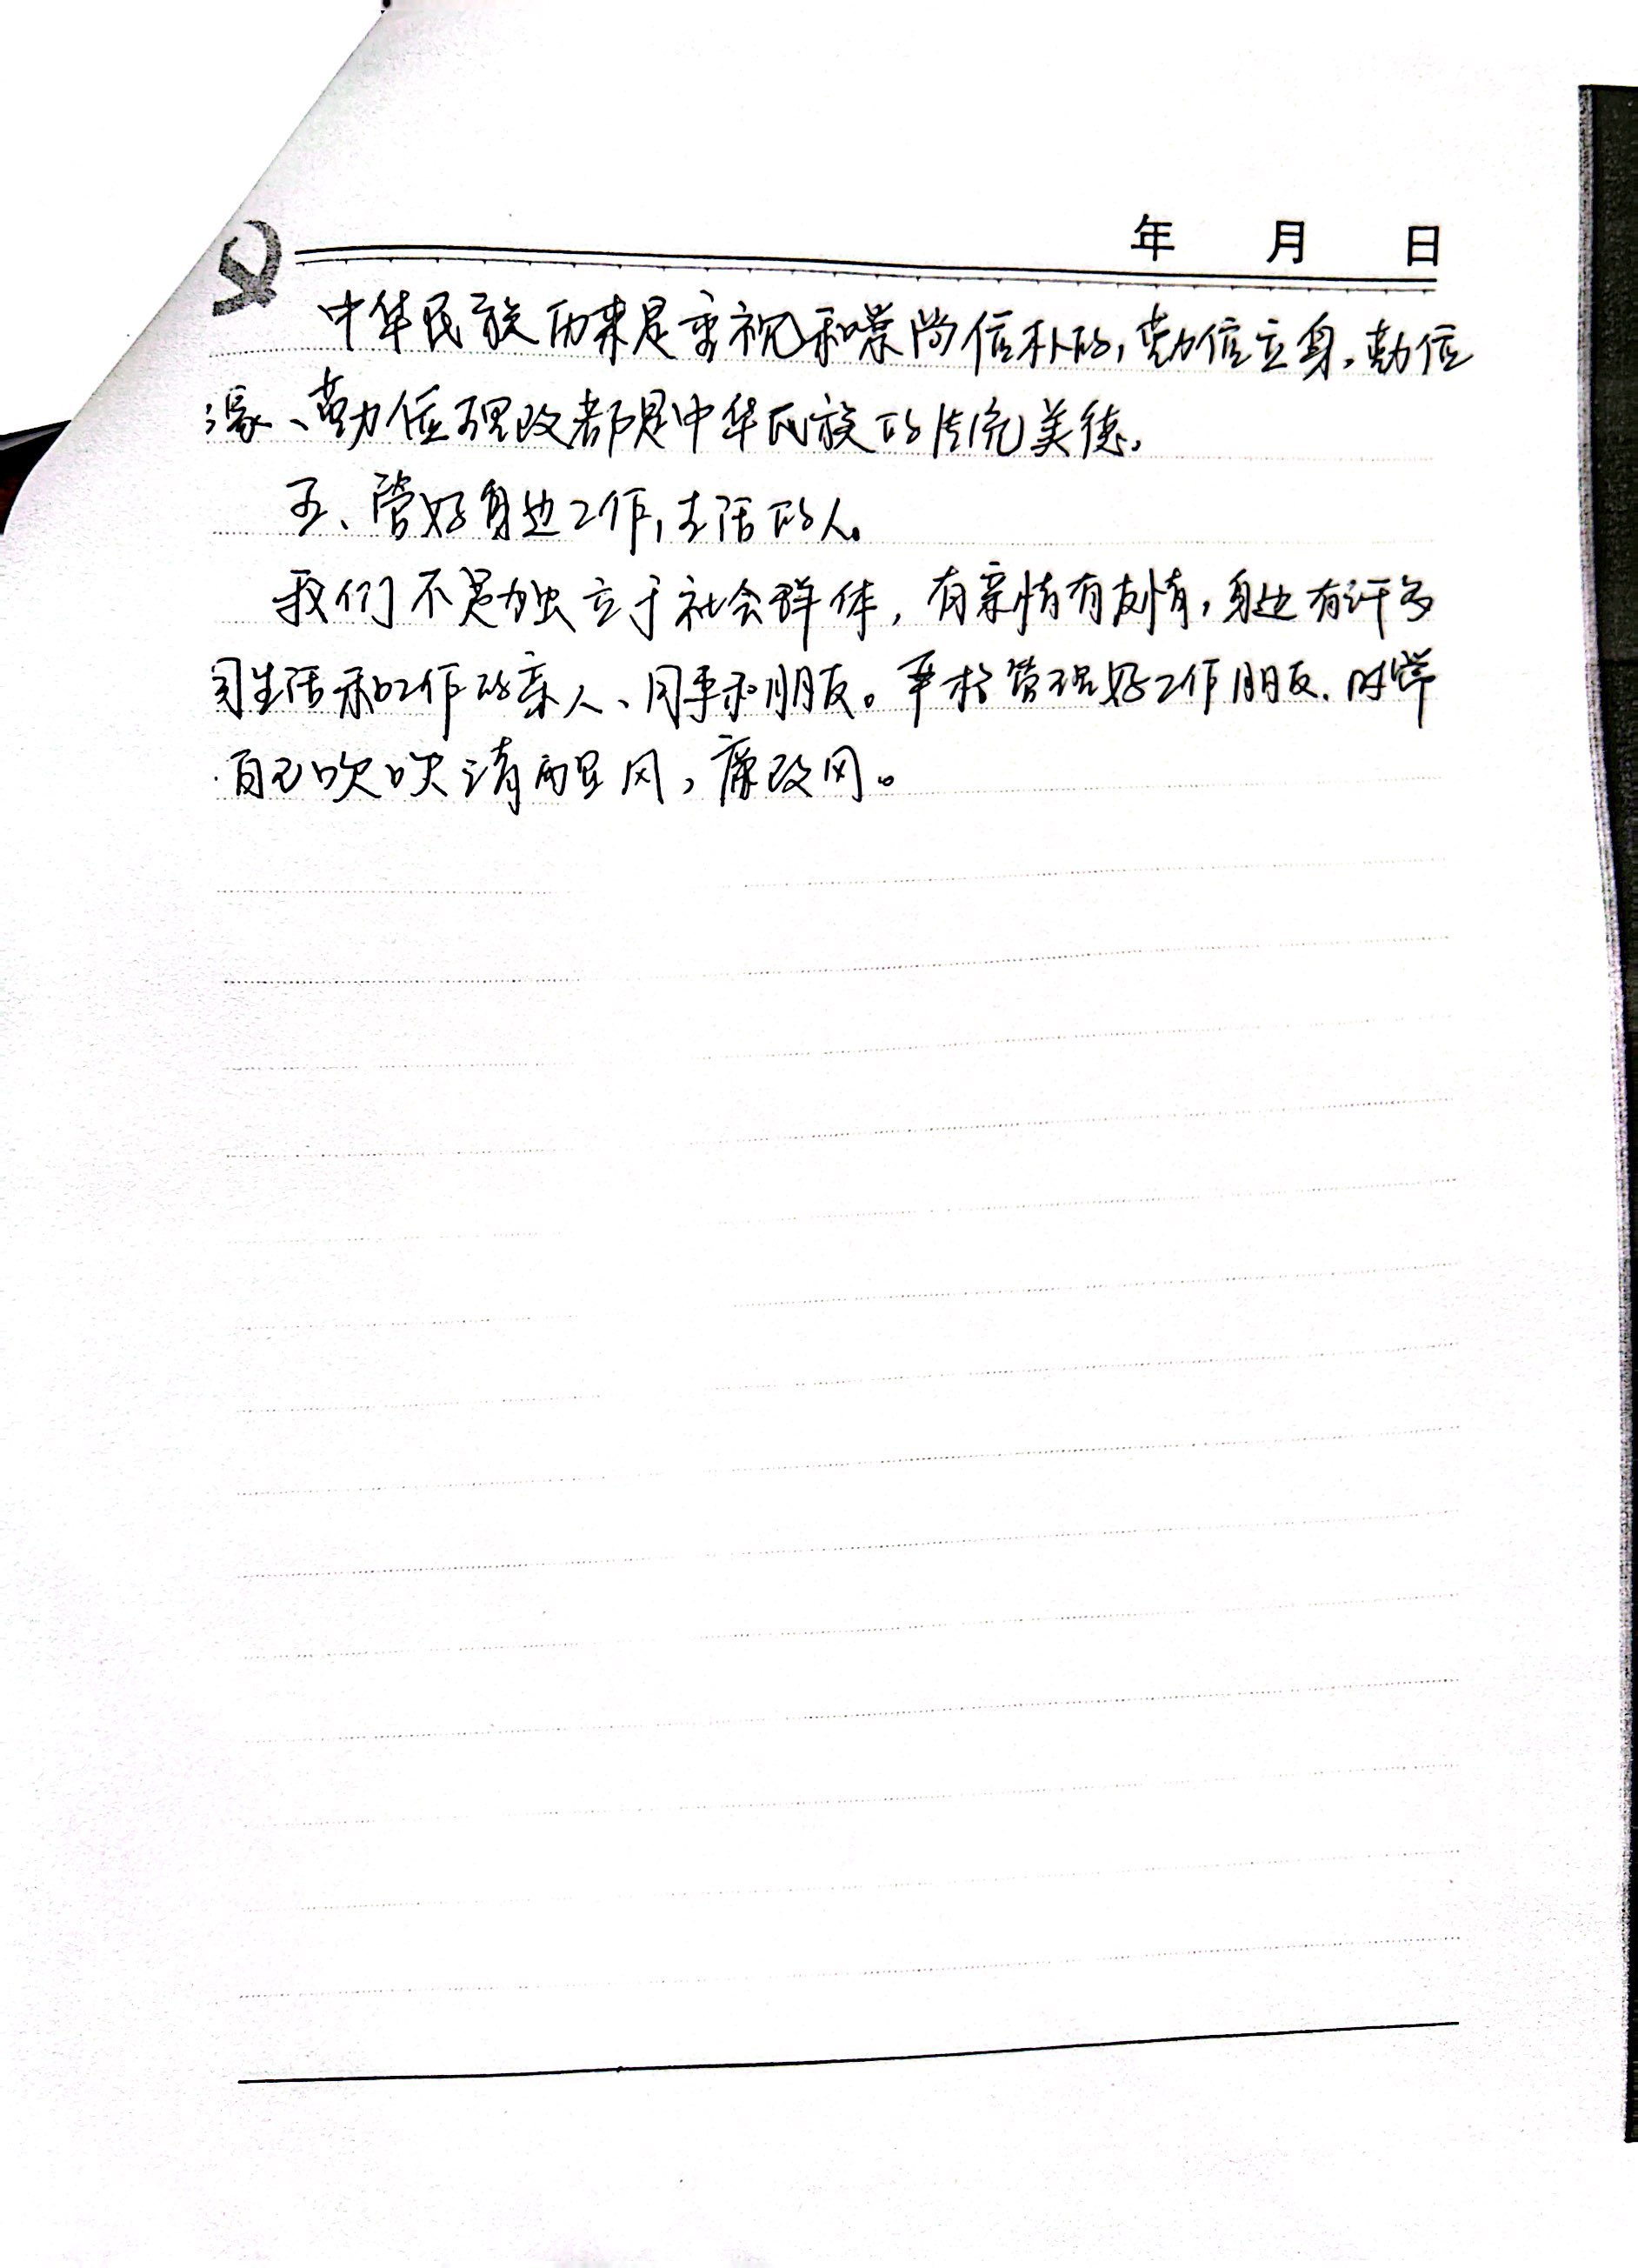 年 月 日
中华民族历来是重视和崇尚俭朴的,勤俭立身,勤俭
家、勤俭理政都是中华民族的传统美德。
五、管好身边工作,生活的人。
我们不是独立于社会群体,有亲情有友情,身边有许多
同生活和工作的亲人、同事和朋友。严格管理好工作朋友,时常
自己吹吹清醒风,廉政风。